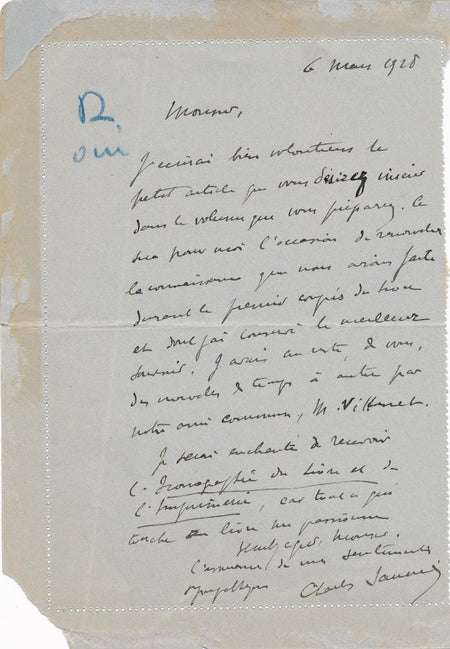 6 mars 1928
R
oui
Monsieur,
J'écrirai bien volontiers le
petit article que vous désirez insérer
dans le volume que vous préparez. Ce
sera pour moi l'occasion de renouveler
la connaissance que nous avions faite
durant le premier congrès du livre
et dont j'ai conservé le meilleur
souvenir. J'avais au reste, de vous,
des nouvelles de temps à autre par
notre ami commun, M.
Je serai enchanté de recevoir
l'Iconographie du Livre et de
l'Imprimerie, car tout ce qui
touche au livre me passionne
Veuillez agréer, Monsieur,
l'assurance de mes sentiments
sympathiques
Charles